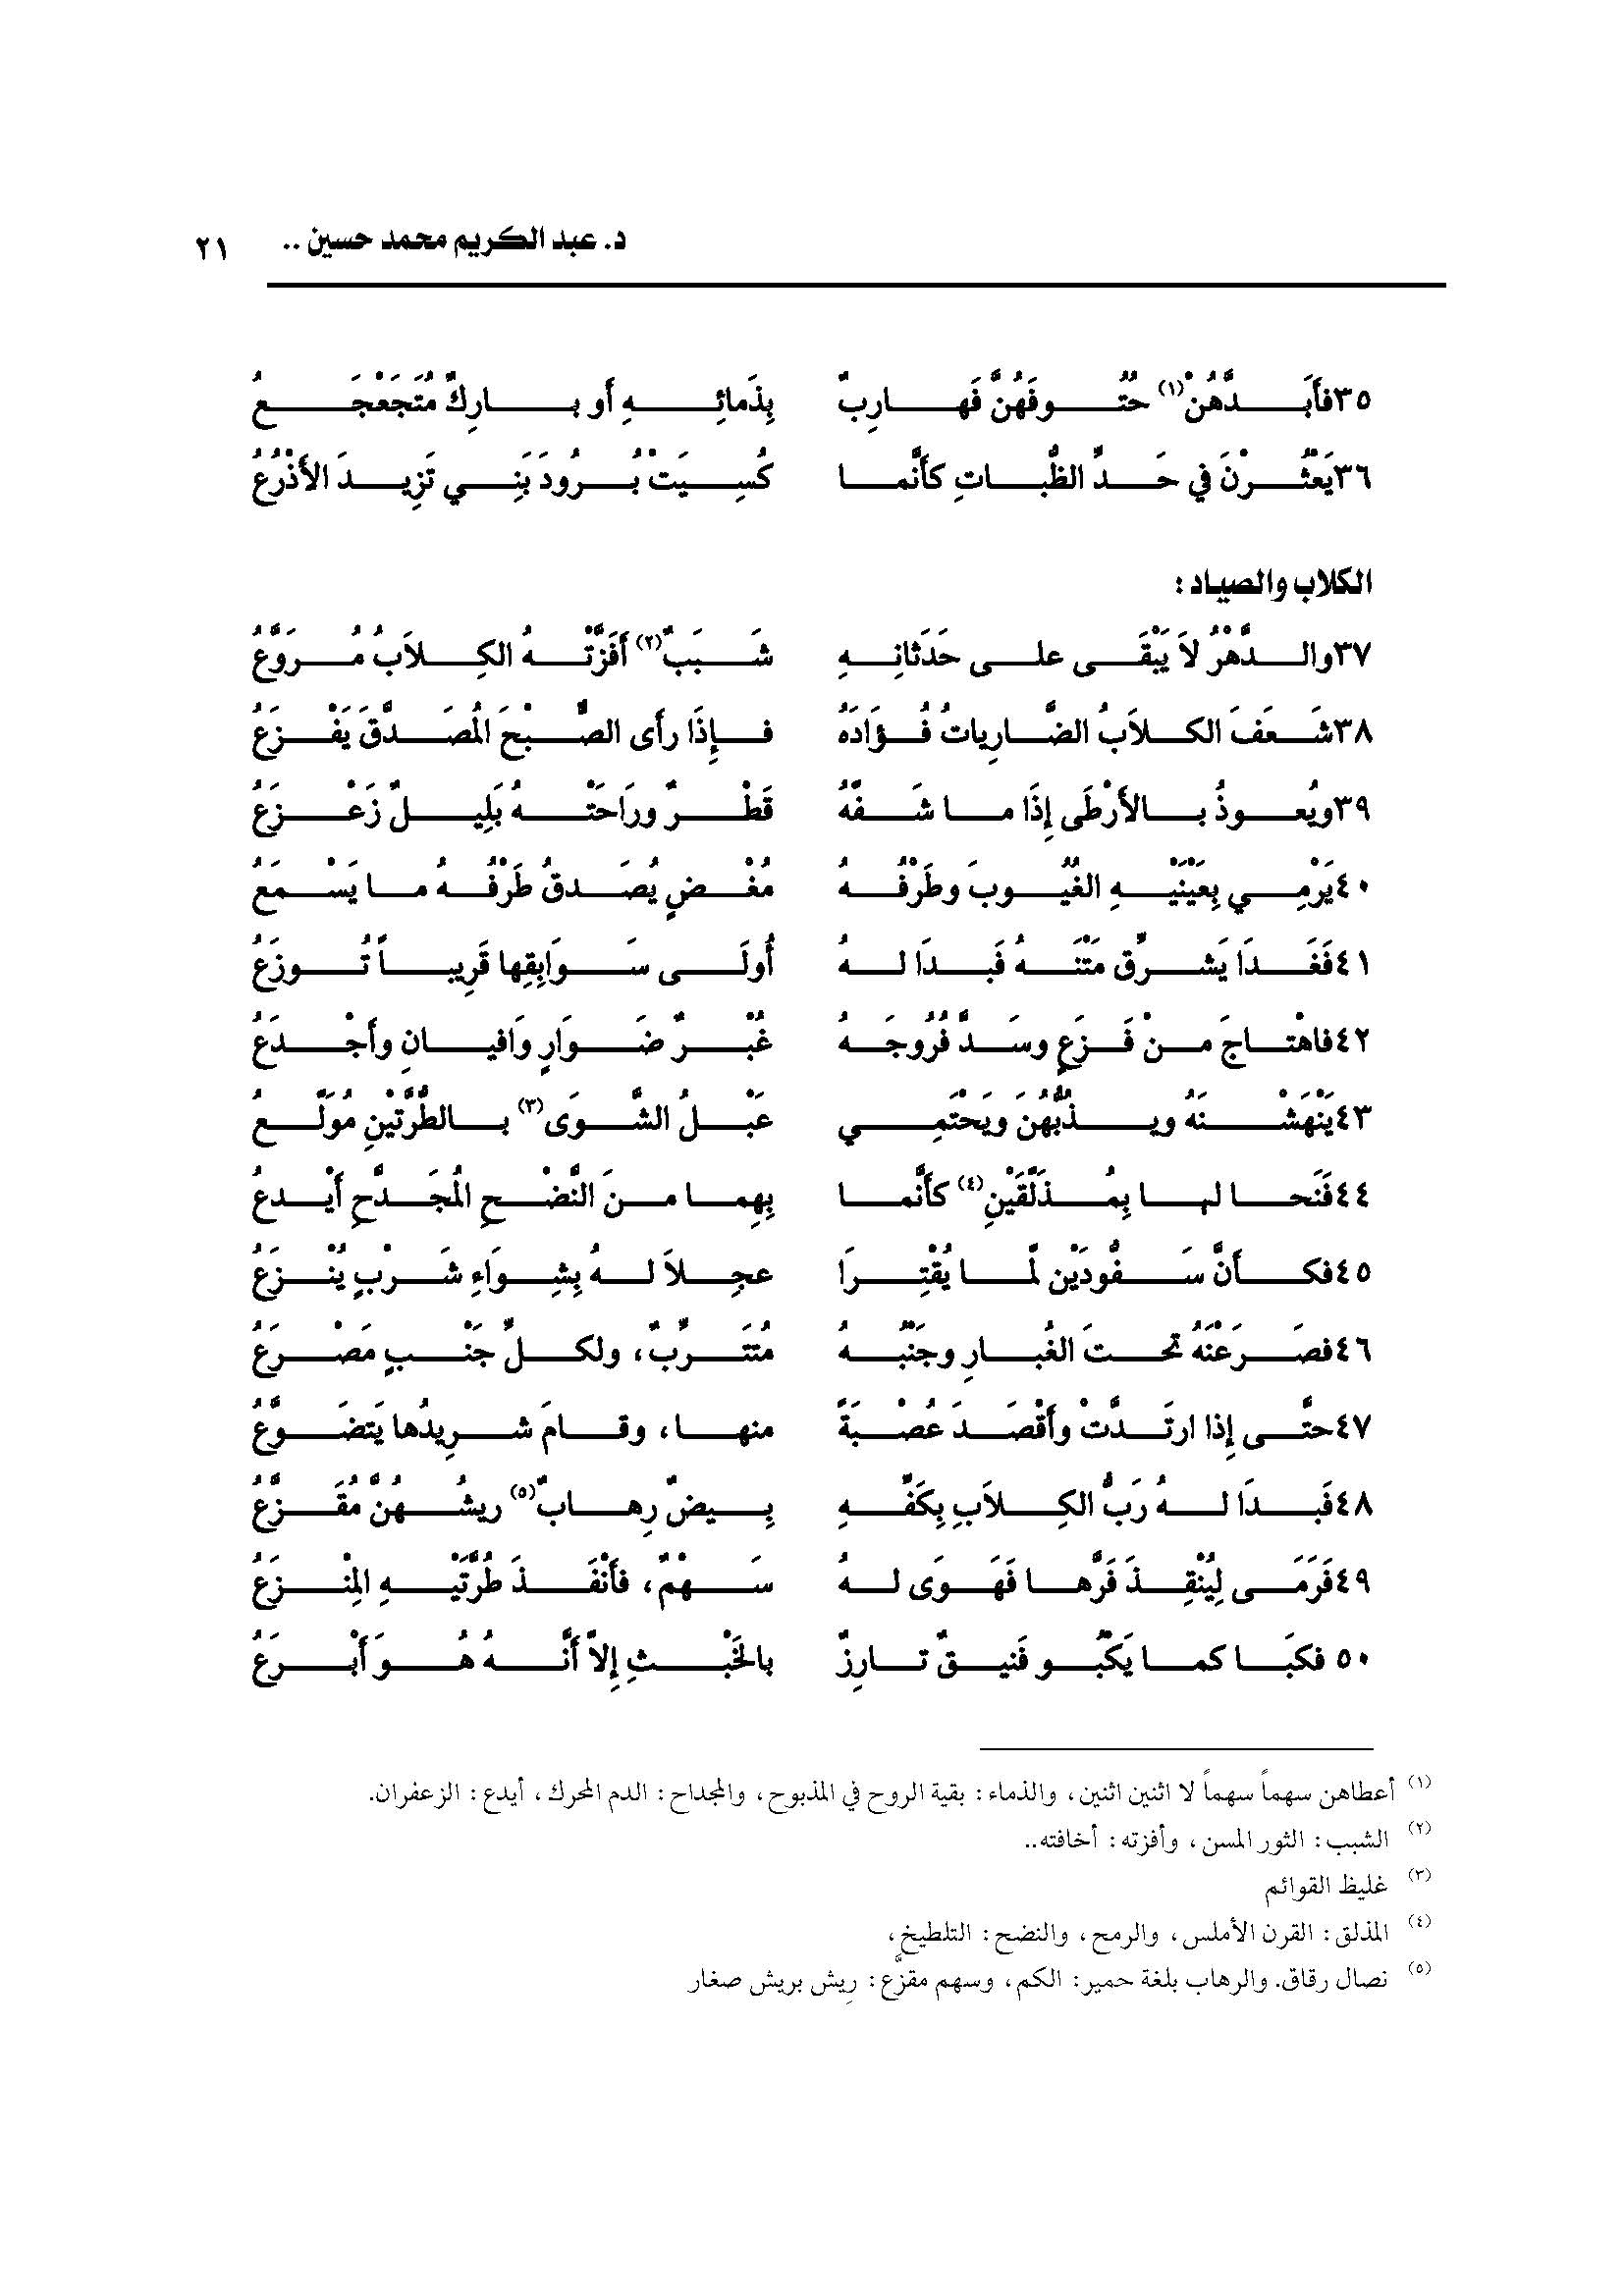 د. عبد الكريم محمد حسين .. ٢١
٣٥فأَبَدَّهُنْ(١) حُتُوفَهُنَّ فَهاربٌ بِذَمائِهِ أَو بارِكٌ مُتَجَعْجَعُ
٣٦يَعْثُرْنَ في حَدِّ الظُّباتِ كأَنَّما كُسِيَتْ بُرُودَ بَنِي تَزِيدَ الأَذْرُعُ
الكلاب والصياد :
٣٧والدَّهْرُ لاَ يَبْقَى على حَدَثانِهِ شَبَبٌ(٢) أَفَزَّتْهُ الكِلاَبُ مُرَوَّعُ
٣٨شَعَفَ الكلاَبُ الضَّارِياتُ فُؤَادَهُ فإِذَا رأَى الصُّبْحَ المُصَدَّقَ يَفْزَعُ
٣٩ويُعوذُ بالأَرْطَى إِذَا ما شَفَّهُ قَطْرٌ ورَاحَتْهُ بَلِيلٌ زَعْزَعُ
٤٠يَرْمِي بِعَيْنَيْهِ الغُيُوبَ وطَرْفُهُ مُغْضٍ يُصَدقُ طَرْفُهُ ما يَسْمَعُ
٤١فَغَدَا يَشرِّق مَتْنَهُ فَبدَا لهُ أُولَى سَوَابِقِها قَرِيباً تُوزَعُ
٤٢فاهْتاجَ منْ فَزَعٍ وسَدَّ فُرُوجَهُ غُبْرٌ ضَوَارٍ وَافيانِ وأَجْدَعُ
٤٣يَنْهَشْنَهُ ويذُبُّهُنَ ويَحْتَمِي عَبْلُ الشَّوَى(٣) بالطُّرَّتْيْنِ مُولَّعُ
٤٤فَنَحا لها بِمُذَلَّقَيْنِ(٤) كأَنَّما بِهِما منَ النَّضْحِ المُجَدَّحِ أَيْدعُ
٤٥فكأَنَّ سَفُّودَيْن لَّما يُقْتِرَا عجِلاَ لهُ بِشِوَاءِ شَرْبٍ يُنْزَعُ
٤٦فصَرَعْنَهُ تحتَ الغُبارِ وجَنْبُهُ مُتَتَرِّبٌ، ولكلِّ جَنْبٍ مَصْرَعُ
٤٧حتَّى إِذا ارتَدَّتْ وأَقْصَدَ عُصْبَةً منها، وقامَ شرِيدُها يَتضَوَّعُ
٤٨فَبدَا لهُ رَبُّ الكِلاَبِ بِكَفِّهِ بِيضٌ رِهابٌ(٥) ريشُهُنَّ مُقَزَّعُ
٤٩فَرَمَى لِيُنْقِذَ فَرَّها فَهَوَى لهُ سَهْمٌ، فأَنْفَذَ طُرَّتَيْهِ المِنْزَعُ
٥٠ فكبَا كما يَكْبُو فَنيقٌ تارِزٌ بالخَبْثِ إِلاَّ أَنَّهُ هُوَ أَبْرَعُ
(١) أعطاهن سهماً سهماً لا اثنين اثنين، والذماء: بقية الروح في المذبوح، والمجداح: الدم المحرك، أيدع: الزعفران.
(٢) الشبب: الثور المسن، وأفزته: أخافته..
(٣) غليظ القوائم
(٤) المذلق: القرن الأملس، والرمح، والنضح: التلطيخ،
(٥) نصال رقاق. والرهاب بلغة حمير: الكم، وسهم مقزَّع: رِيش بريش صغار